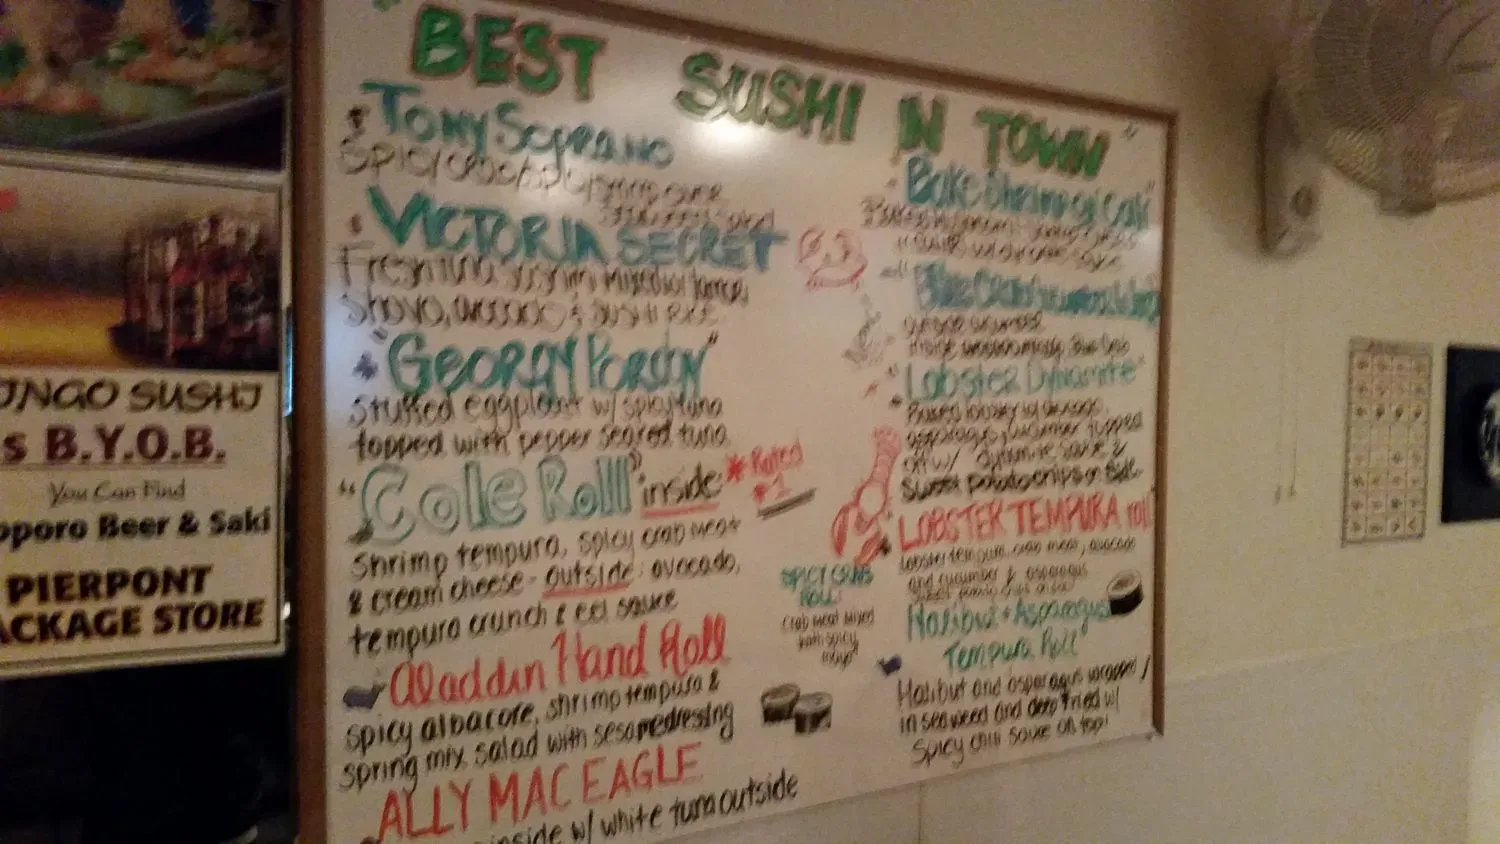 "BEST SUSHI IN TOWN"
TONY SOPRANO
VICTORIA SECRET
Fresh tuna sashimi mixed w/
Shoyo, avocado & SUSHI RICE
"GEORGY PORGY"
Stuffed eggplant w/ spicy tuna
topped with pepper seared tuna
"Cole Roll" inside
* Rated
#1
shrimp tempura, spicy crab meat
& cream cheese - outside: avocado,
tempura crunch & eel sauce
Aladdin Hand Roll
spicy albacore, shrimp tempura &
spring mix salad with sesame dressing
ALLY MAC EAGLE
inside w/ white tuna outside
SPICY CRAB
ROLL:
Crab meat mixed
with spicy
mayo!
"Lobster Dynamite"
asparagus, cucumber topped
off w/ dynamite sauce &
Sweet potato chips on side
LOBSTER TEMPURA roll
lobster tempura, crab meat, avocado
and cucumber & asparagus
Halibut + Asparagus
Tempura Roll"
Halibut and asparagus wrapped
in seaweed and deep fried w/
Spicy chili sauce on top!
NGO SUSHI
s B.Y.O.B.
You Can Find
pporo Beer & Saki
PIERPONT
ACKAGE STORE